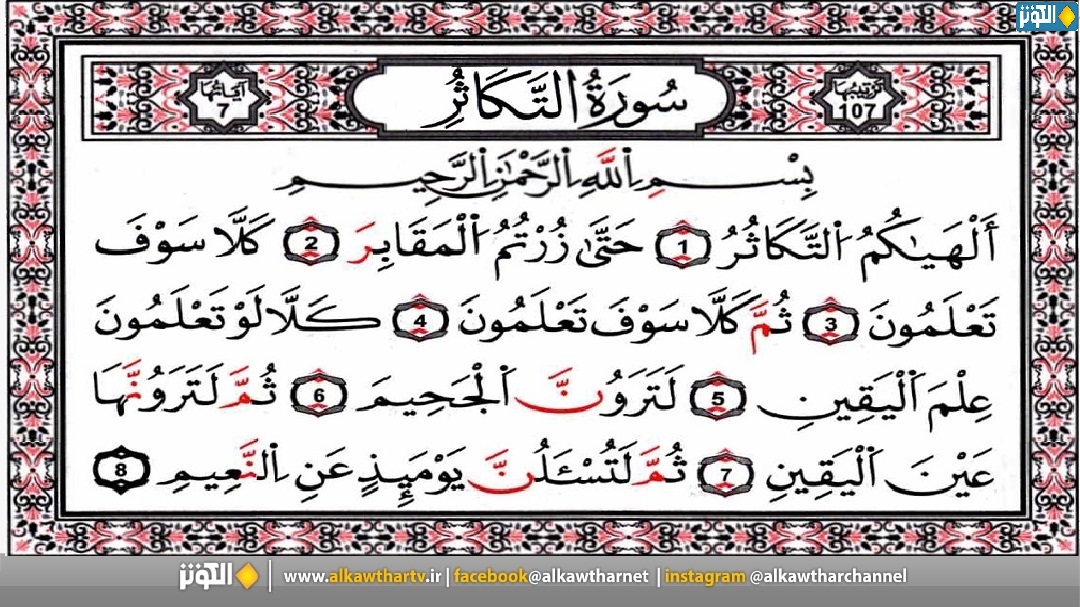 الكوثر
ترتيبها 107
سُورَةُ التَّكَاثُرِ
آياتها 7
بِسْمِ اللَّهِ الرَّحْمَٰنِ الرَّحِيمِ
أَلْهَىٰكُمُ التَّكَاثُرُ 1 حَتَّىٰ زُرْتُمُ الْمَقَابِرَ 2 كَلَّا سَوْفَ
تَعْلَمُونَ 3 ثُمَّ كَلَّا سَوْفَ تَعْلَمُونَ 4 كَلَّا لَوْ تَعْلَمُونَ
عِلْمَ الْيَقِينِ 5 لَتَرَوُنَّ الْجَحِيمَ 6 ثُمَّ لَتَرَوُنَّهَا
عَيْنَ الْيَقِينِ 7 ثُمَّ لَتُسْـَٔلُنَّ يَوْمَئِذٍ عَنِ النَّعِيمِ 8
الكوثر | www.alkawthartv.ir | facebook@alkawtharnet | instagram @alkawtharchannel